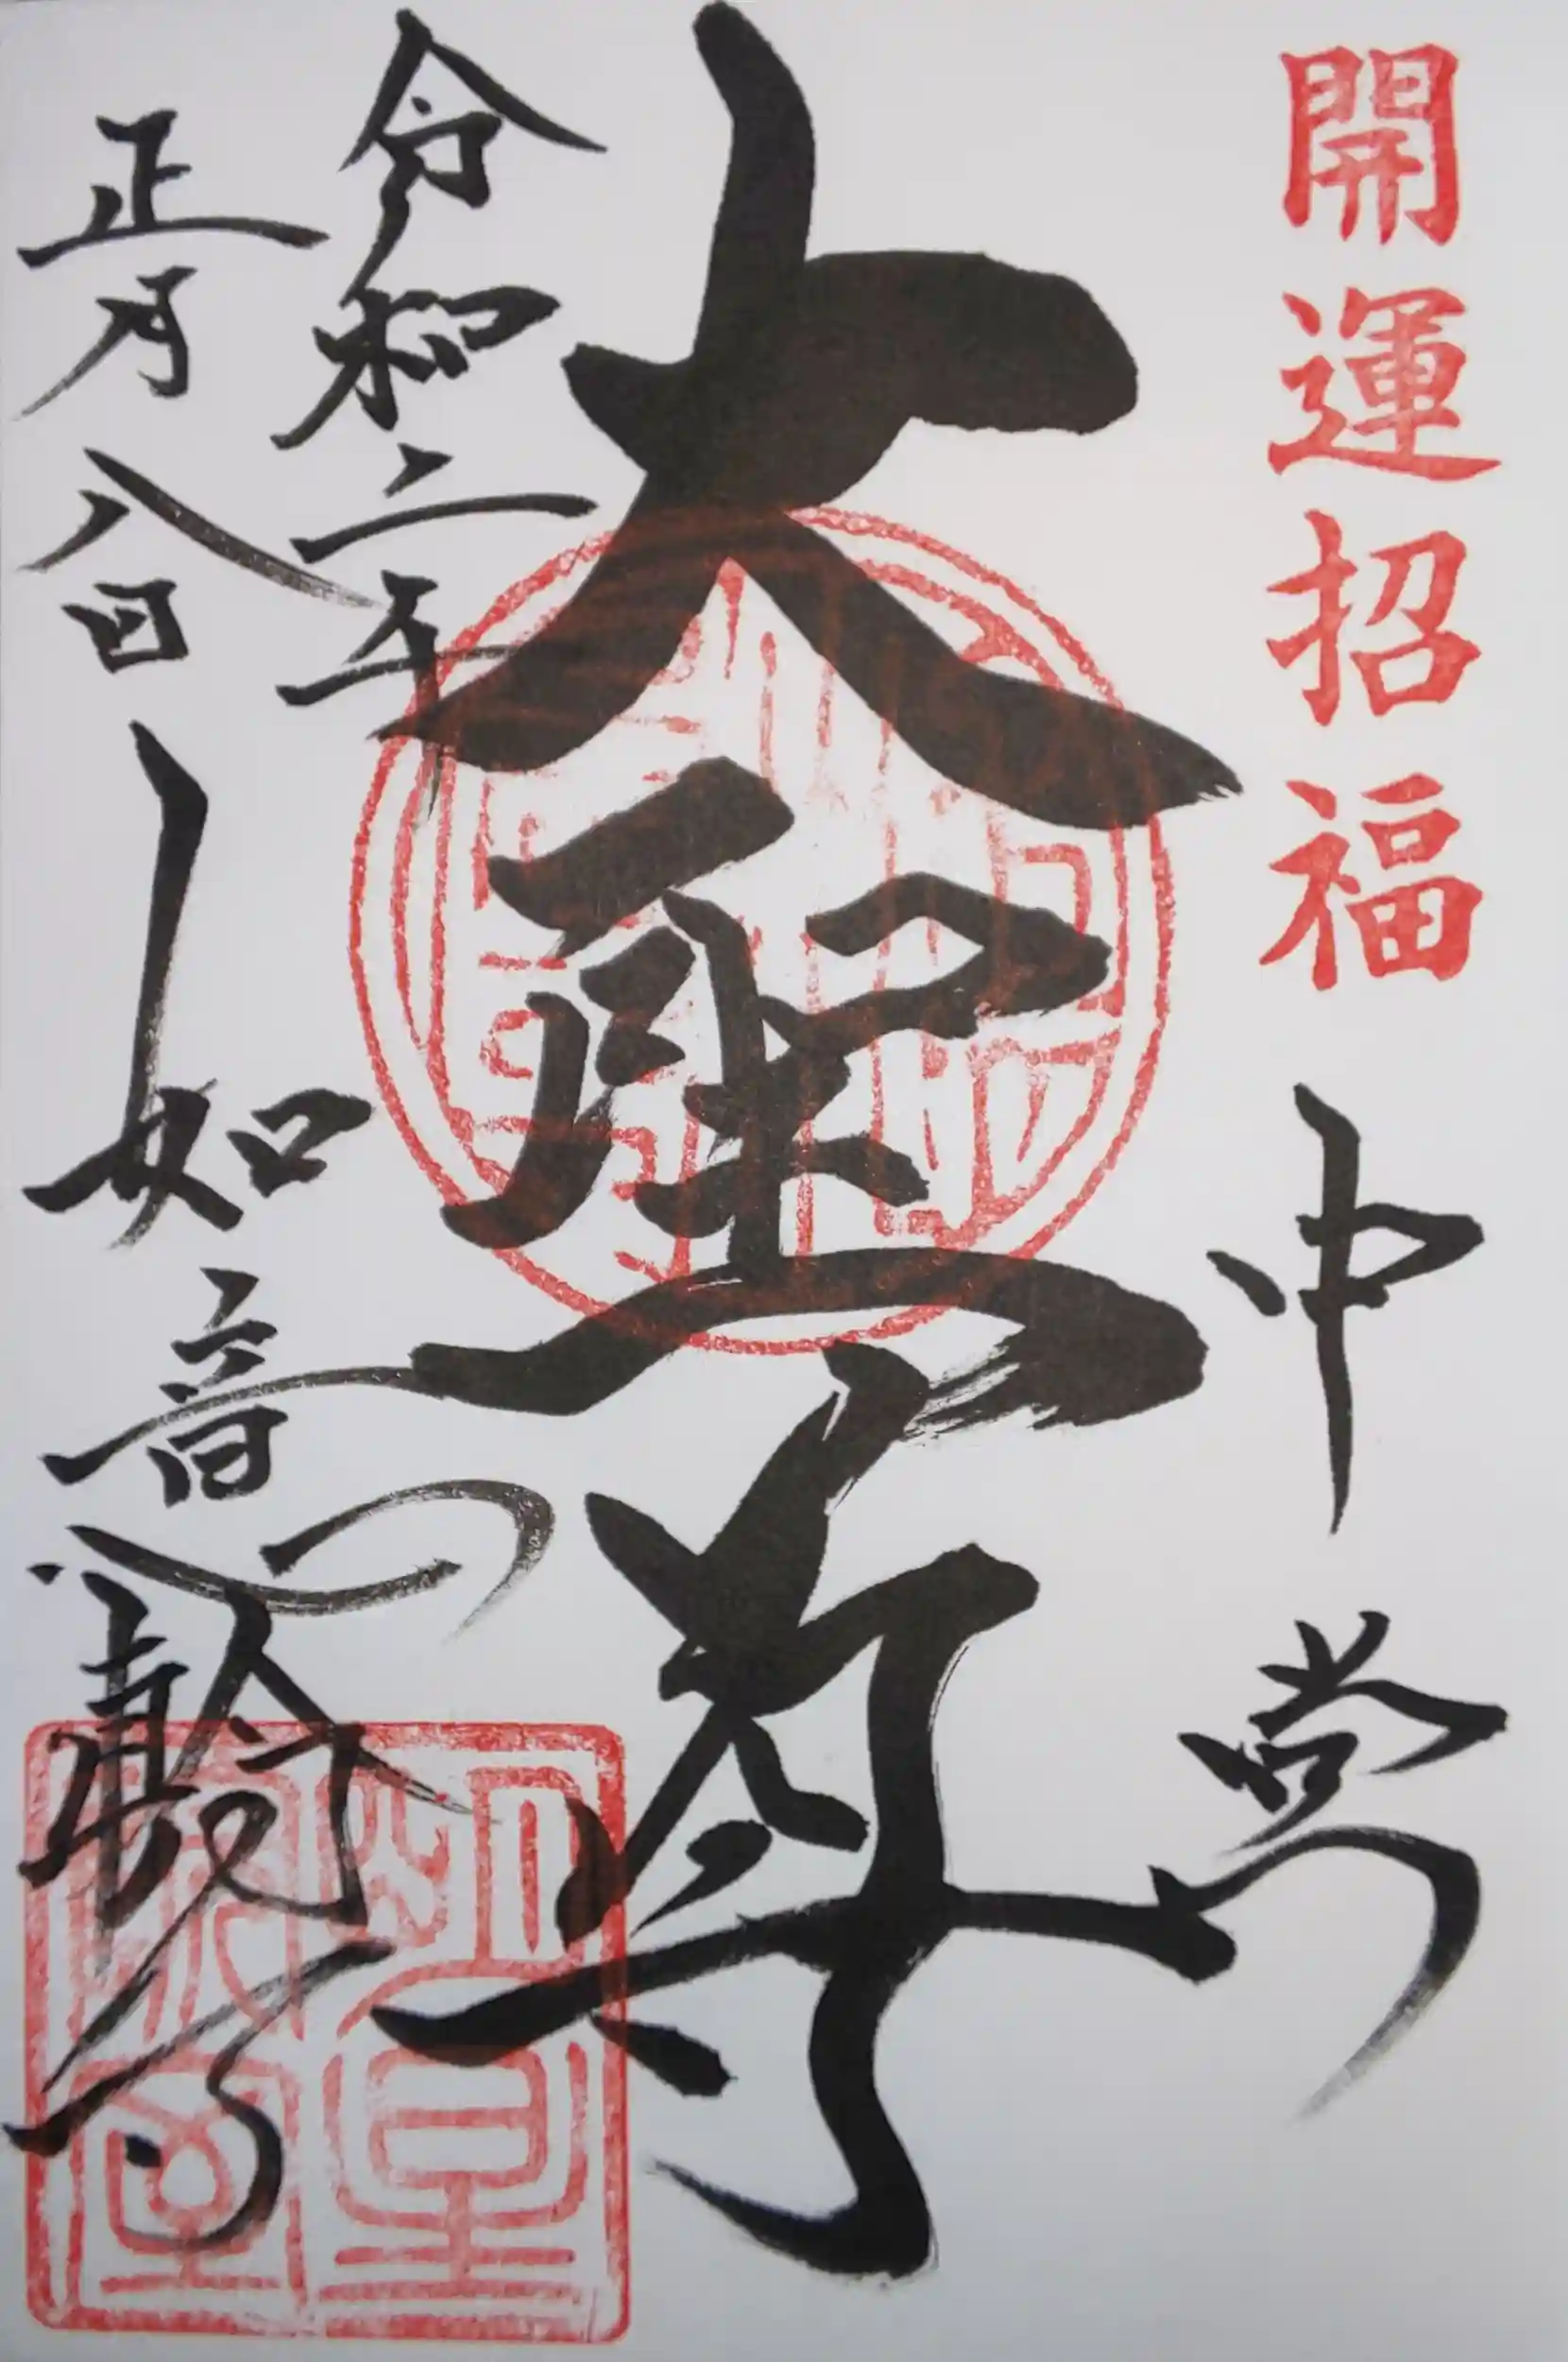 開運招福
中堂
大聖尊
令和二年
正月八日
如意